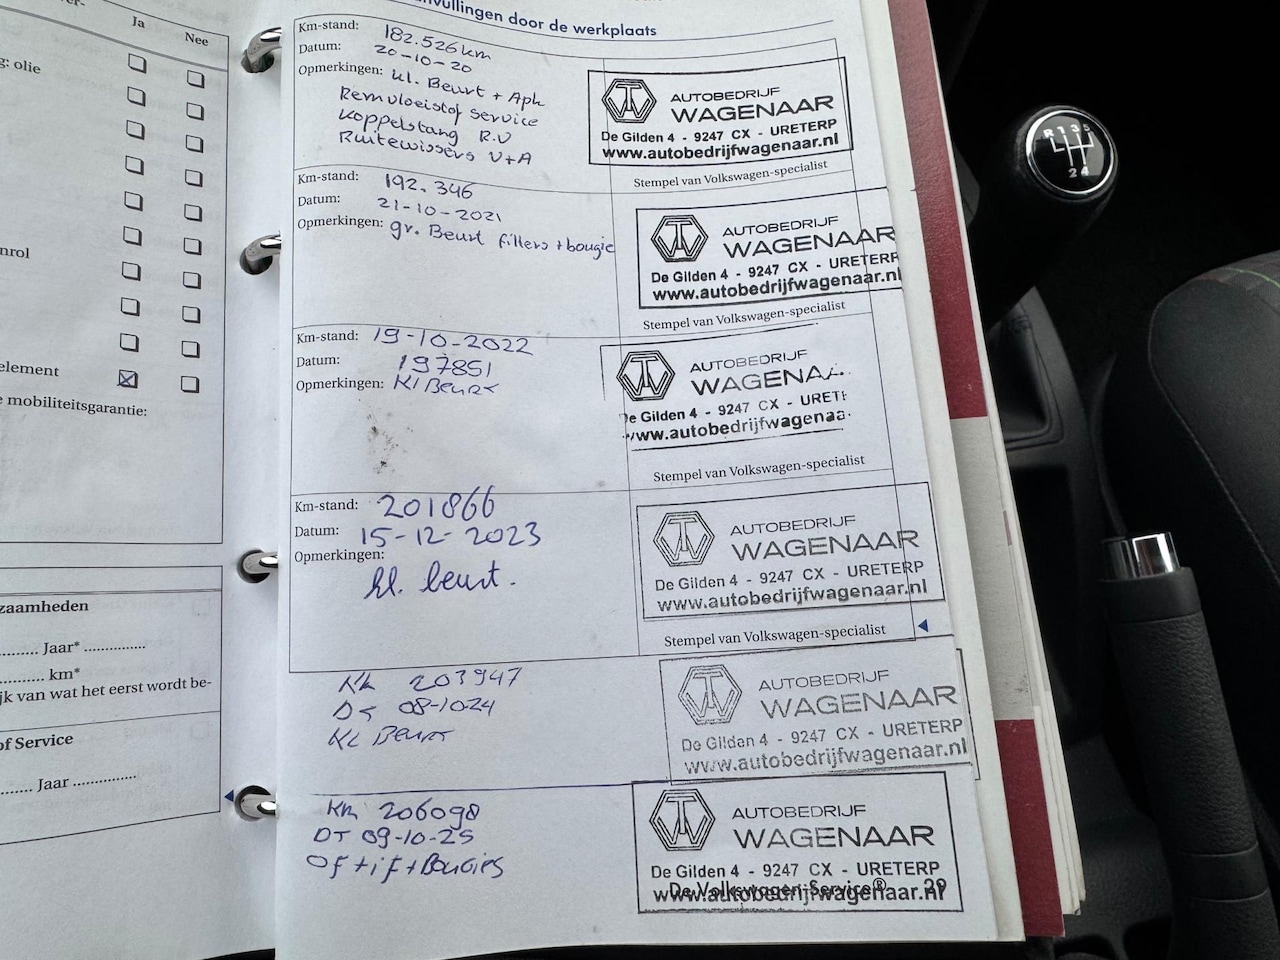 Ja
Nee
g: olie
nrol
element
e mobiliteitsgarantie:
zaamheden
Jaar*
km*
jk van wat het eerst wordt be-
of Service
Jaar
nvullingen door de werkplaats
Km-stand: 182.526 km
Datum: 20-10-20
Opmerkingen: kl. Beurt + Apk
Remvloeistof service
Koppelstang R.V
Ruitewissers V+A
AUTOBEDRIJF
WAGENAAR
De Gilden 4 - 9247 CX - URETERP
www.autobedrijfwagenaar.nl
Stempel van Volkswagen-specialist
Km-stand: 192.346
Datum: 21-10-2021
Opmerkingen: gr. Beurt filters + bougie
AUTOBEDRIJF
WAGENAAR
De Gilden 4 - 9247 CX - URETERP
www.autobedrijfwagenaar.nl
Stempel van Volkswagen-specialist
Km-stand: 19-10-2022
Datum: 197851
Opmerkingen: Kl Beurt
AUTOBEDRIJF
WAGENA
De Gilden 4 - 9247 CX - URET
www.autobedrijfwagenaa
Stempel van Volkswagen-specialist
Km-stand: 201866
Datum: 15-12-2023
Opmerkingen:
kl. beurt.
AUTOBEDRIJF
WAGENAAR
De Gilden 4 - 9247 CX - URETERP
www.autobedrijfwagenaar.nl
Stempel van Volkswagen-specialist
Km 203947
DT 08-10-24
KL Beurt
AUTOBEDRIJF
WAGENAAR
De Gilden 4 - 9247 CX - URETERP
www.autobedrijfwagenaar.nl
Km 206098
DT 09-10-25
Of + if + Bougies
AUTOBEDRIJF
WAGENAAR
De Gilden 4 - 9247 CX - URETERP
www.autobedrijfwagenaar.nl
De Volkswagen Service® 29
R 1 3 5
2 4